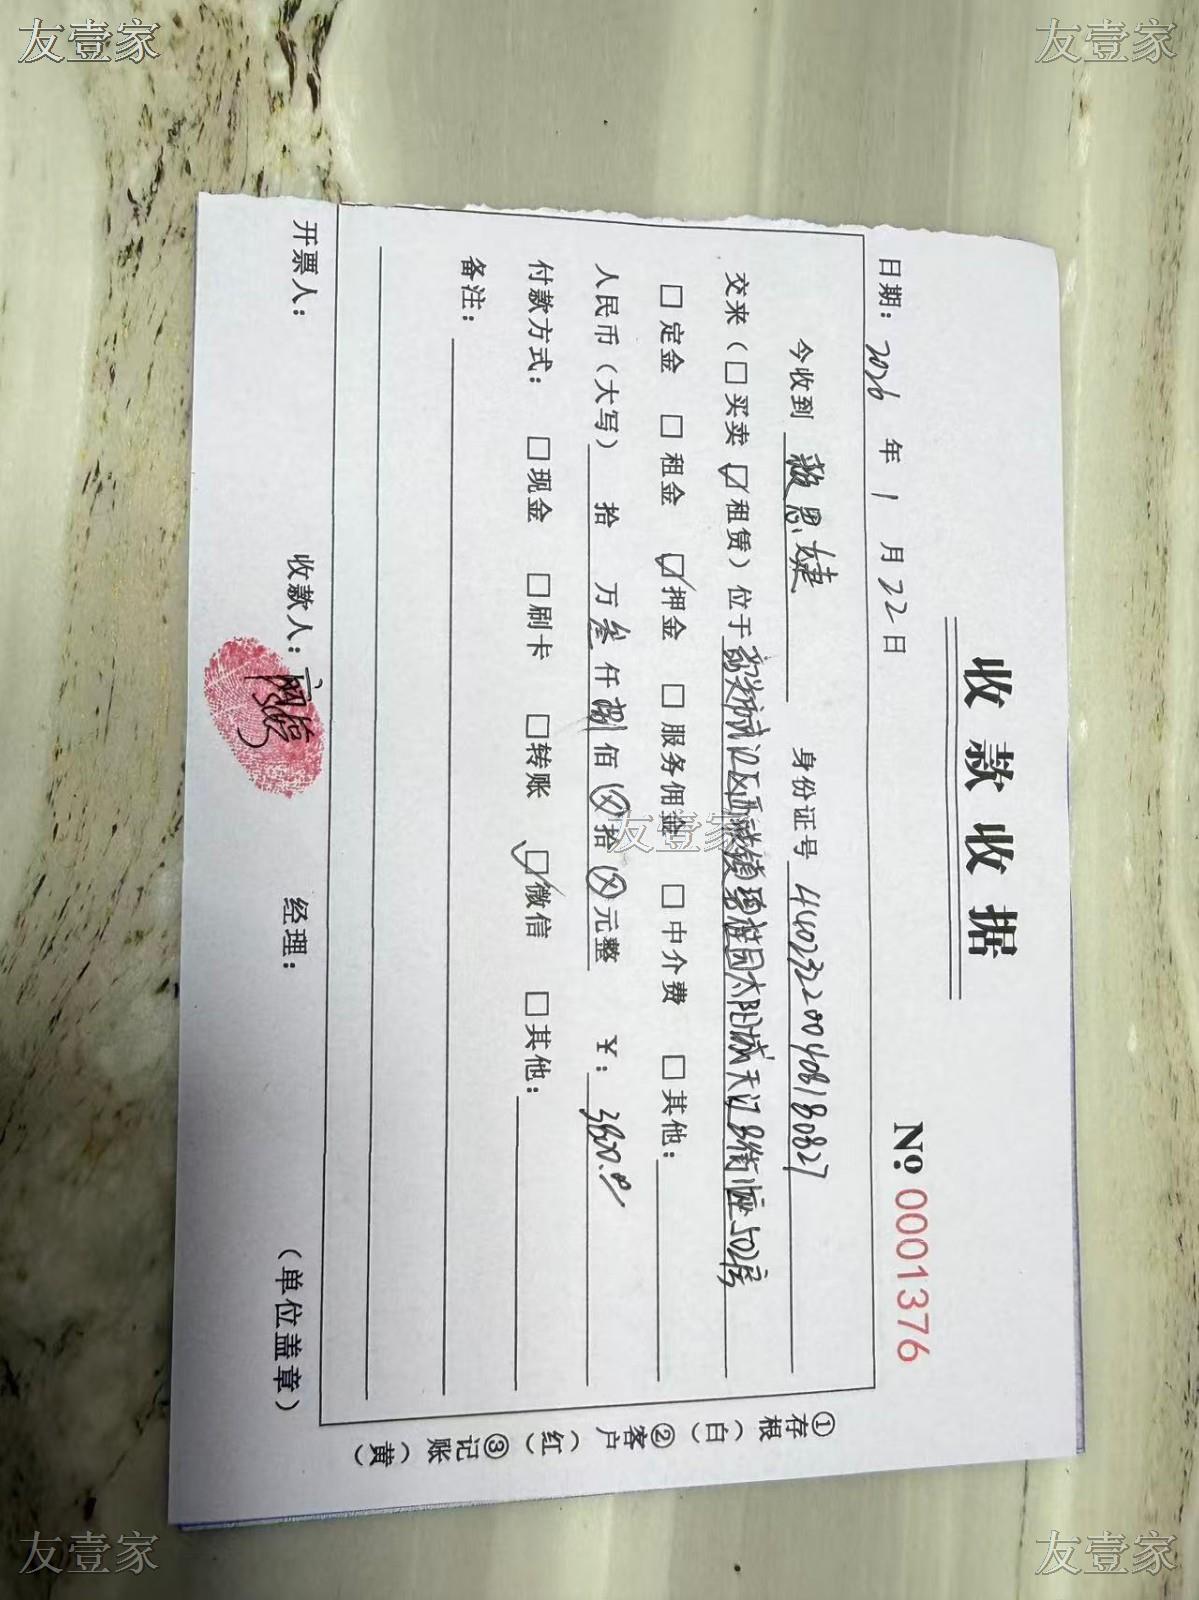 友壹家
友壹家
收款收据
№ 0001376
日期：2026 年 1 月 22 日
今收到 思婕 身份证号 440232200408180827
交来（□买卖 ☑租赁）位于韶关市浈江区西联镇碧桂园太阳城天汀8街1座502房
□定金 □租金 ☑押金 □服务佣金 □中介费 □其他：
人民币（大写） 拾 万叁仟捌佰⊗拾⊗元整 ¥：3800.00
付款方式： □现金 □刷卡 □转账 ☑微信 □其他：
备注：
开票人： 收款人： 经理： （单位盖章）
①存根（白）②客户（红）③记账（黄）
友壹家
友壹家
友壹家